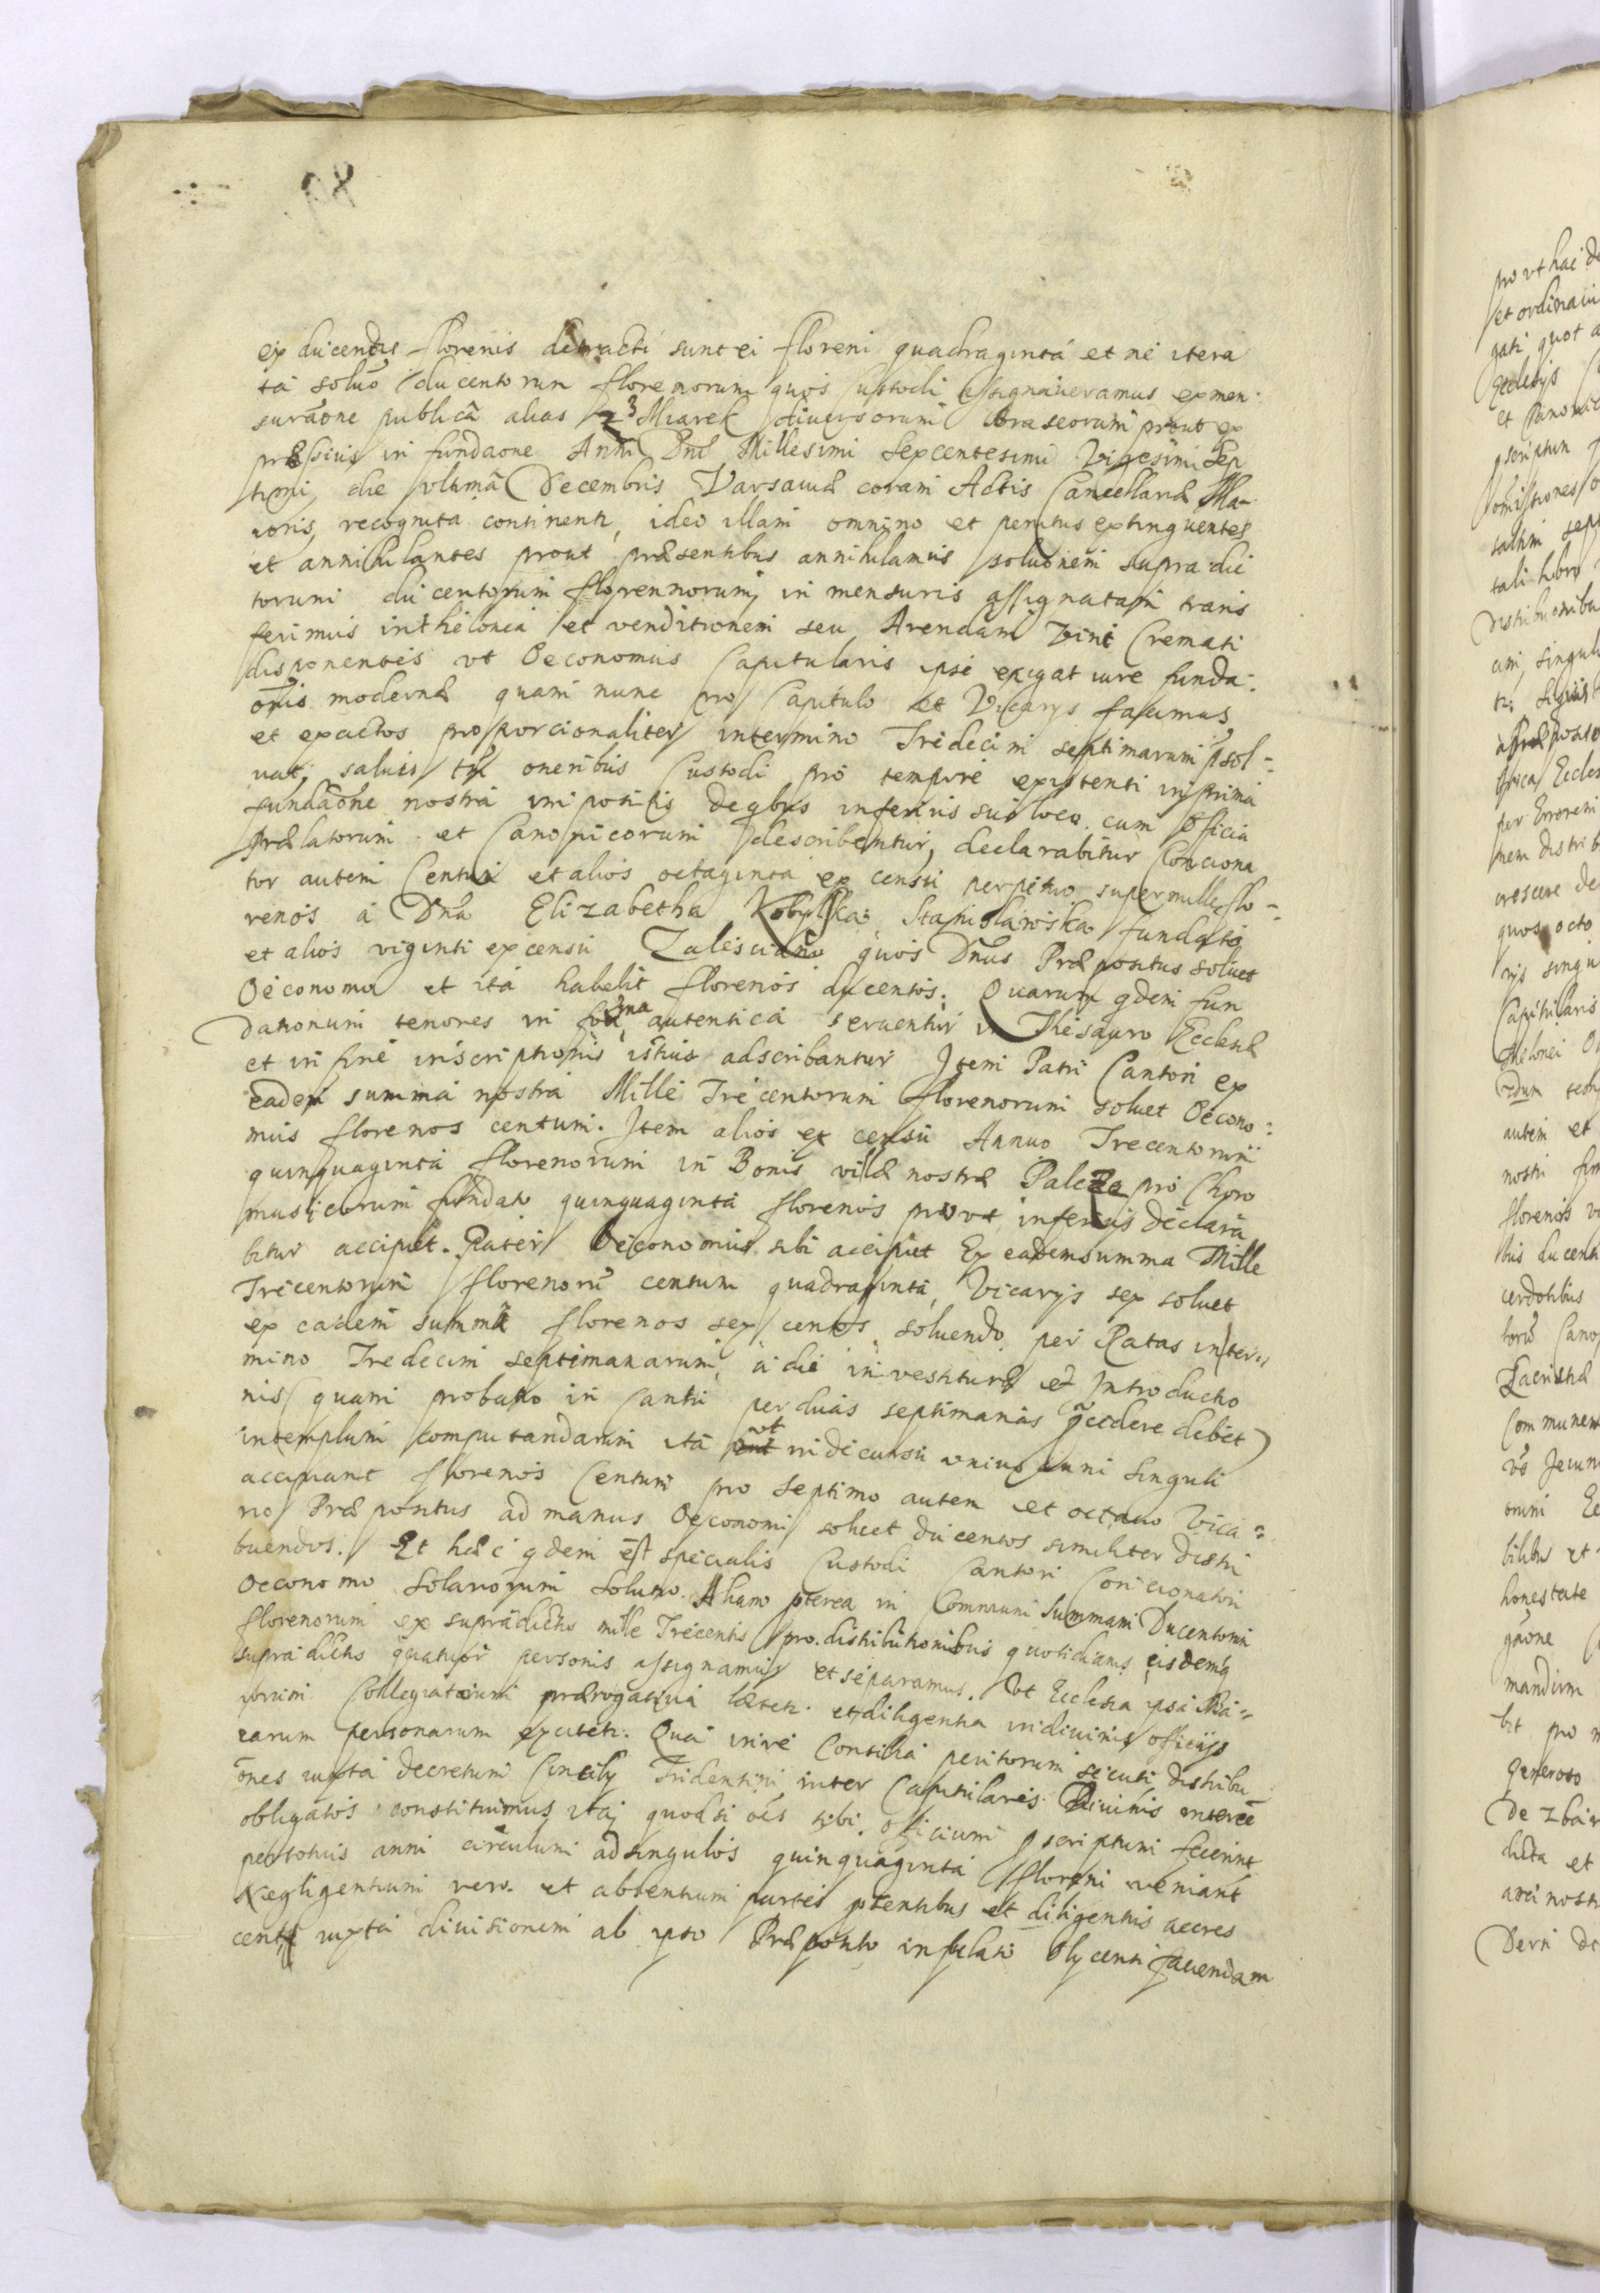 ex ducentis florenis detracti sunt ei floreni quadraginta et ne itera
ta soluo ducentorum florenorum quos Custodi assignaueramus ex men
suraone publica alias z Miarek diuersorum braseorum prout ex
præssius in fundaone Anni Dni Millesimi Sexcentesimi Vigesimi Sep
timi, die vltima Decembris Varsauiæ coram Actis Cancellariæ Ma
ioris, recognita continentr, ideo illam omnino et penitus extinguentes
et annihilantes prout præsentibus annihilamus solutionem supra dic
torum ducentorum florennorum, in mensuris assignatam trans
ferimus in thelonea et venditionem seu Arendam Vini Cremati
disponentes vt Oeconomus Capitularis ipse exigat iure funda
onis modernæ quam nunc pro Capitulo et Vicarys facimus
et exactos proporcionaliter in termino Tredecim septimarum psol=
uat, saluis tn oneribus Custodi pro tempore existenti in prima
fundaone nostra impositis de qbus inferius suo loco cum officia
Prælatorum et Canonicorum describentur, declarabitur Conciona
tor autem Centum et alios octaginta ex censu perpetuo super mille flo=
renos a Dna Elizabetha Kobylska Stanislawska fundato
et alios viginti ex censu Zalesciano quos Dnus Præpositus soluet
Oeconomo et ita habebit florenos ducentos. Quarum qdem fun
dationum tenores in forma autentica seruentur in Thesauro Ecclesiæ
et in fine inscriptionis istius adscribantur Item Patri Cantori ex
eadem summa nostra Mille Trecentorum florenorum soluet Oecono=
mus florenos centum. Item alios ex censu Annuo Trecentorum
quinquaginta florenorum in Bonis villæ nostræ Palcze pro Choro
musicorum fundato quinquaginta florenos provt inferius declara
bitur accipiet. Pater Oeconomus sibi accipiet Ex eadem summa Mille
Trecentorum florenorum centum quadraginta, Vicarys sex soluet
ex eadem summa florenos sex centos soluendo per Ratas in ter=
mino Tredecim septimanarum, a die inuestituræ et Introductio
nis (quam probatio in Cantu per duas septimanas pcedere debet)
in templum computandarum ita vt in decursu vnius anni singuli
accipiant florenos Centum pro septimo autem et octauo Vica=
rio Præpositus ad manus Oeconomi soluet ducentos similiter distri
buendos. Et hæc qdem est specialis Custodi Cantori Concionatori
Oeconomo Solariorum solutio. Aliam pterea in Communi Summam Ducentorum
florenorum ex supradictis mille Trecentis pro distributionibus quotidianis eisdemq
supradictis quatuor personis assignamus et separamus. Vt Ecclesia ipsa Ma=
iorum Collegiatarum prærogatiua lætetr. et diligentia in diuinis officijs
earum personarum excitetr. Qua in re Consilia peritorum secuti distribu
ones iuxta decretum Concily Tridentini inter Capitulares Diuinis interee
obligatos constituimus ita, quod si oes sibi officium pscriptum fecerint
per totius anni circulum ad singulos quinquaginta floreni veniant
Negligentium vero et absentium partes ptentibus et diligentius accres
cent iuxta diuisionem ab ipso Præposito infulato Olycensi faciendam